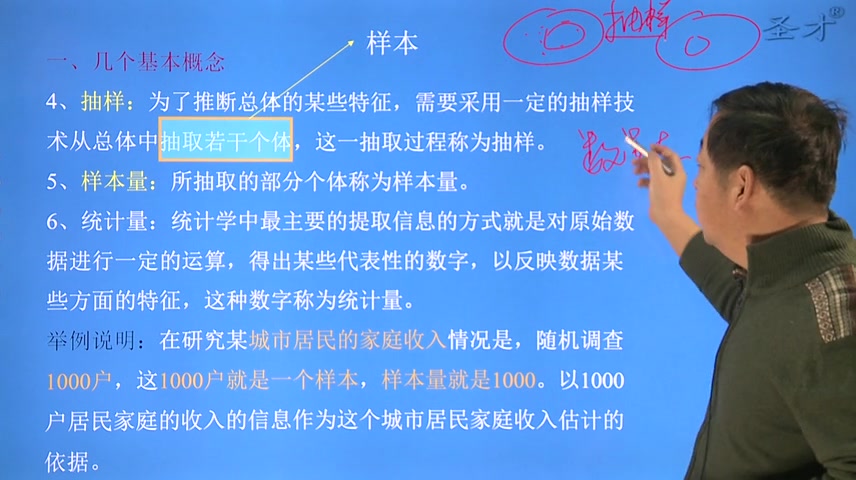 样本
抽样
圣才®
一、几个基本概念
4、抽样：为了推断总体的某些特征，需要采用一定的抽样技
术从总体中抽取若干个体，这一抽取过程称为抽样。
5、样本量：所抽取的部分个体称为样本量。
6、统计量：统计学中最主要的提取信息的方式就是对原始数
据进行一定的运算，得出某些代表性的数字，以反映数据某
些方面的特征，这种数字称为统计量。
举例说明：在研究某城市居民的家庭收入情况是，随机调查
1000户，这1000户就是一个样本，样本量就是1000。以1000
户居民家庭的收入的信息作为这个城市居民家庭收入估计的
依据。